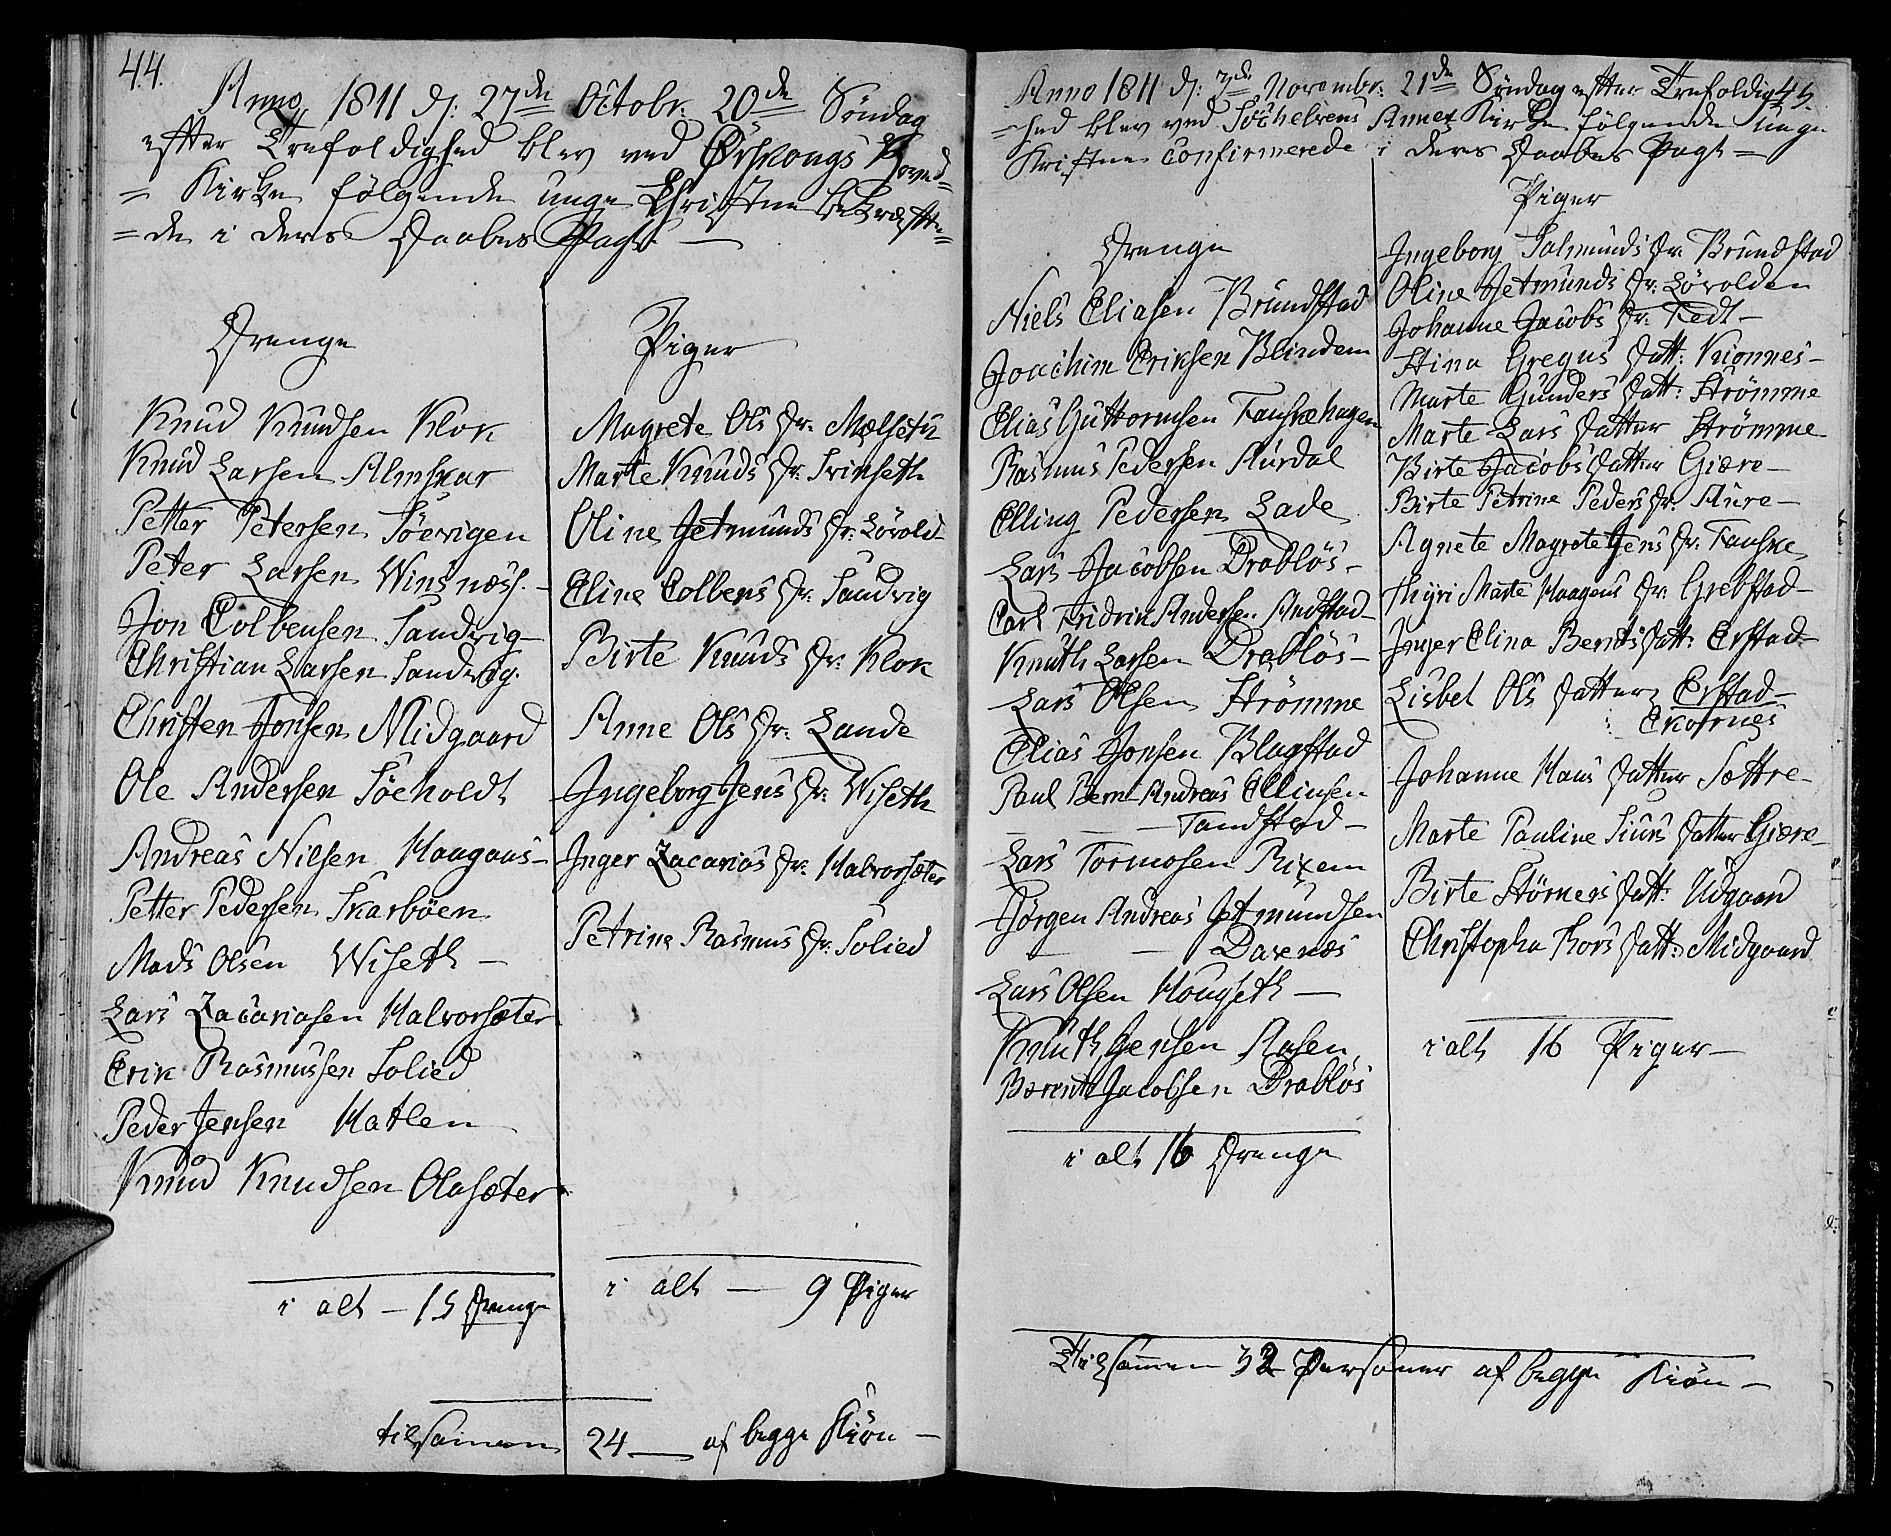 44.
Anno 1811 d: 27de Octobr. 20de Söndag
efter Trefoldighed blev ved Ørskougs Hoved=
= Kirke følgende unge Christne bekræfte=
=de i deres Daabes Pagt —
Drenge
Knud Knudsen Klok
Knud Larsen Almskar
Petter Petersen Söevigen
Peter Larsen Winsnæss. -
Jon Colbensen Sandvig-
Christian Larsen Sandvig.
Christen Jonsen Midgaard
Ole Andersen Söeholdt
Andreas Nilsen Haagaas-
Petter Pedersen Skarböen
Mads Olsen Wiseth —
Lars Zacariasen Halvorsæter
Erik Rasmussen Solied
Peder Jensen Hatlen
Knud Knudsen Olasæter
i alt — 15 Drenge
Piger
Magrete Ols Dr. Mælsetu
Marte Knuds Dr. Frinseth
Oline Getmunds Dr. Lövold-
Eline Colbens Dr. Sandvig
Birte Knuds Dr. Klok
Anne Ols Dr. Lande
Ingeborg Jens Dr. Wiseth
Inger Zacarias Dr. Halvorsæter
Petrine Rasmus Dr. Solied
i alt — 9 Piger
tilsamen 24 — af begge Kiön —
45.
Anno 1811 d: 3de Novembr: 21de Söndag efter Trefoldig
=hed blev ved Söchelvens Annex Kirke følgende unge
Kristne Confirmerede i deres Daabes Pagt —
Drenge
Niels Eliasen Brundstad
Joachim Eriksen Blindem
Elias Guttormsen Fauskehagen
Rasmus Pedersen Aurdal
Elling Pedersen Lade
Lars Jacobsen Drablös -
Carl Fridrik Andersen Andstad-
Knuth Larsen Drablös -
Lars Olsen Strömme
Elias Jonsen Blagstad
Paul Bern- Andreas Ellinsen
— — — Tandstad —
Lars Tormosen Rixem
Jörgen Andreas Getmundsen
— — Daxenæs
Lars Olsen Hougseth —
Knuth Jensen Aasen
Barentt Jacobsen Drablös
i alt 16 Drenge
Piger
Ingeborg Salmunds Dr. Brundstad
Oline Getmunds Dr. Lövolden
Johanne Jacobs Dr. Tedt -
Stina Gregus Datt: Kionnes-
Marte Gunders Datt: Strömme
Marte Lars Datter Strömme
Birte Jacobs Datter Giære-
Birte Petrine Peders Dr. Aure-
Agnete Magrete Jens Dr. Fauske
Thyri Marte Haagens Dr. Grebstad-
Inger Elina Bernts Datt: Erstad-
Lisbet Ols Datter Erstad-
Ekornes
Johanne Hans Datter Sættre-
Marte Pauline Siurs Datter Giære-
Birte Störners Datt: Udgaard
Christopha Kors Datt: Midgaard
i alt 16 Piger —
Tilsammen 32 Personer af begge Kiön —